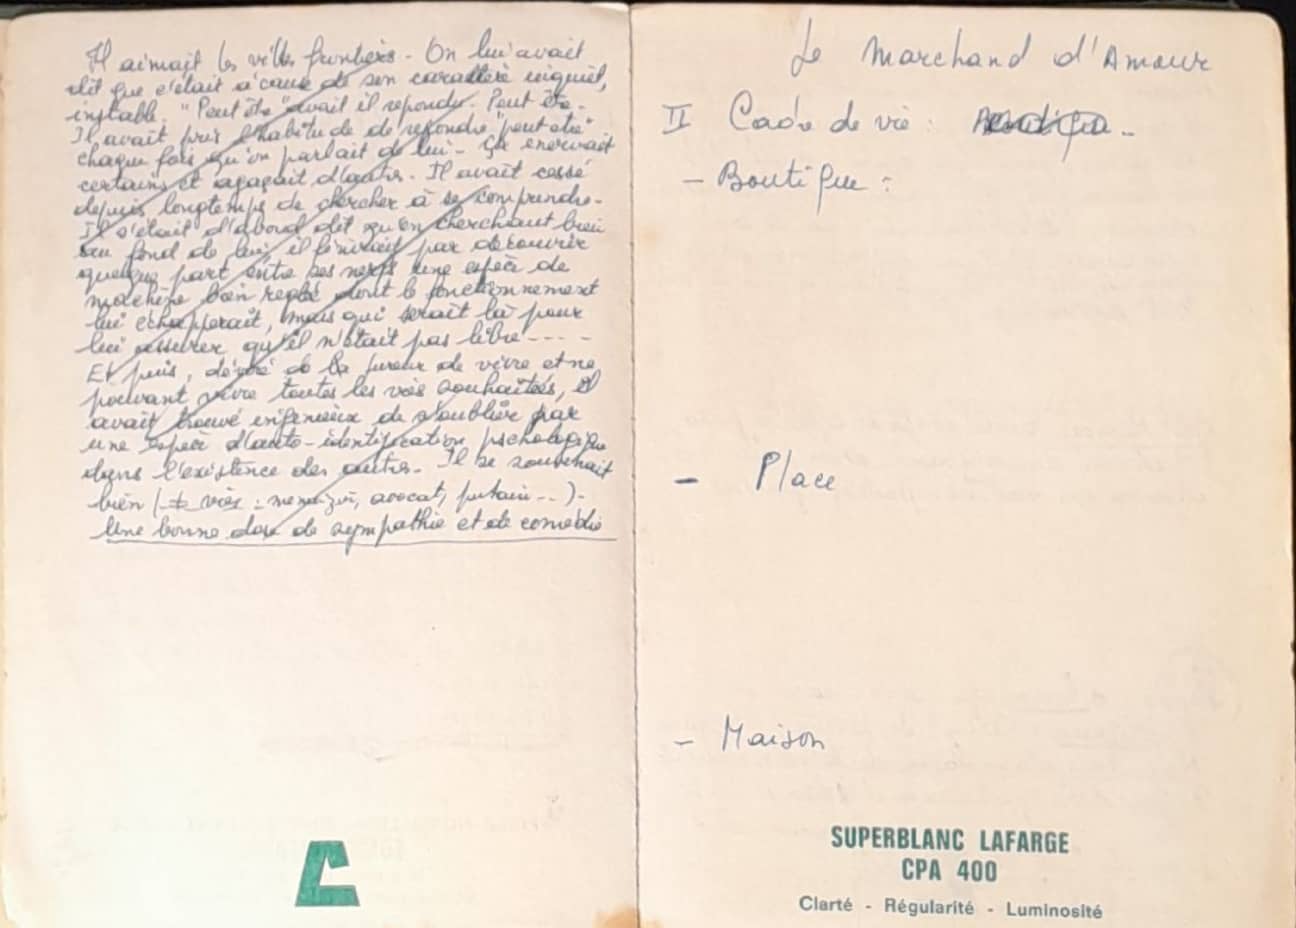 Il aimait les villes frontières - On lui avait
dit que c'était à cause de son caractère inquiet,
instable. "Peut être" avait il répondu. Peut être.
Il avait pris l'habitude de répondre "peut etre"
chaque fois qu'on parlait de lui - ça enervait
certains et agaçait d'autres. Il avait cessé
depuis longtemps de chercher à se comprendre.
Il s'était d'abord dit qu'en cherchant bien
au fond de lui, il finirait par découvrir
quelque part entre ses nerfs une espèce de
machine bien reglée dont le fonctionnement
lui échapperait, mais qui serait là pour
lui assurer qu'il n'était pas libre - - - -
Et puis, de la fureur de vivre et ne
pouvant vivre toutes les vies souhaitées, il
avait trouvé ingénieux de s'oublier par
une espèce d'auto-identification psychologique
dans l'existence des autres. Il se souvenait
bien (≠ vies : avocat, putain - - ) -
Une bonne dose de sympathie et de comédie
Le Marchand d'Amour
II Cadre de vie :
- Boutique :
- Place
- Maison
SUPERBLANC LAFARGE
CPA 400
Clarté - Régularité - Luminosité